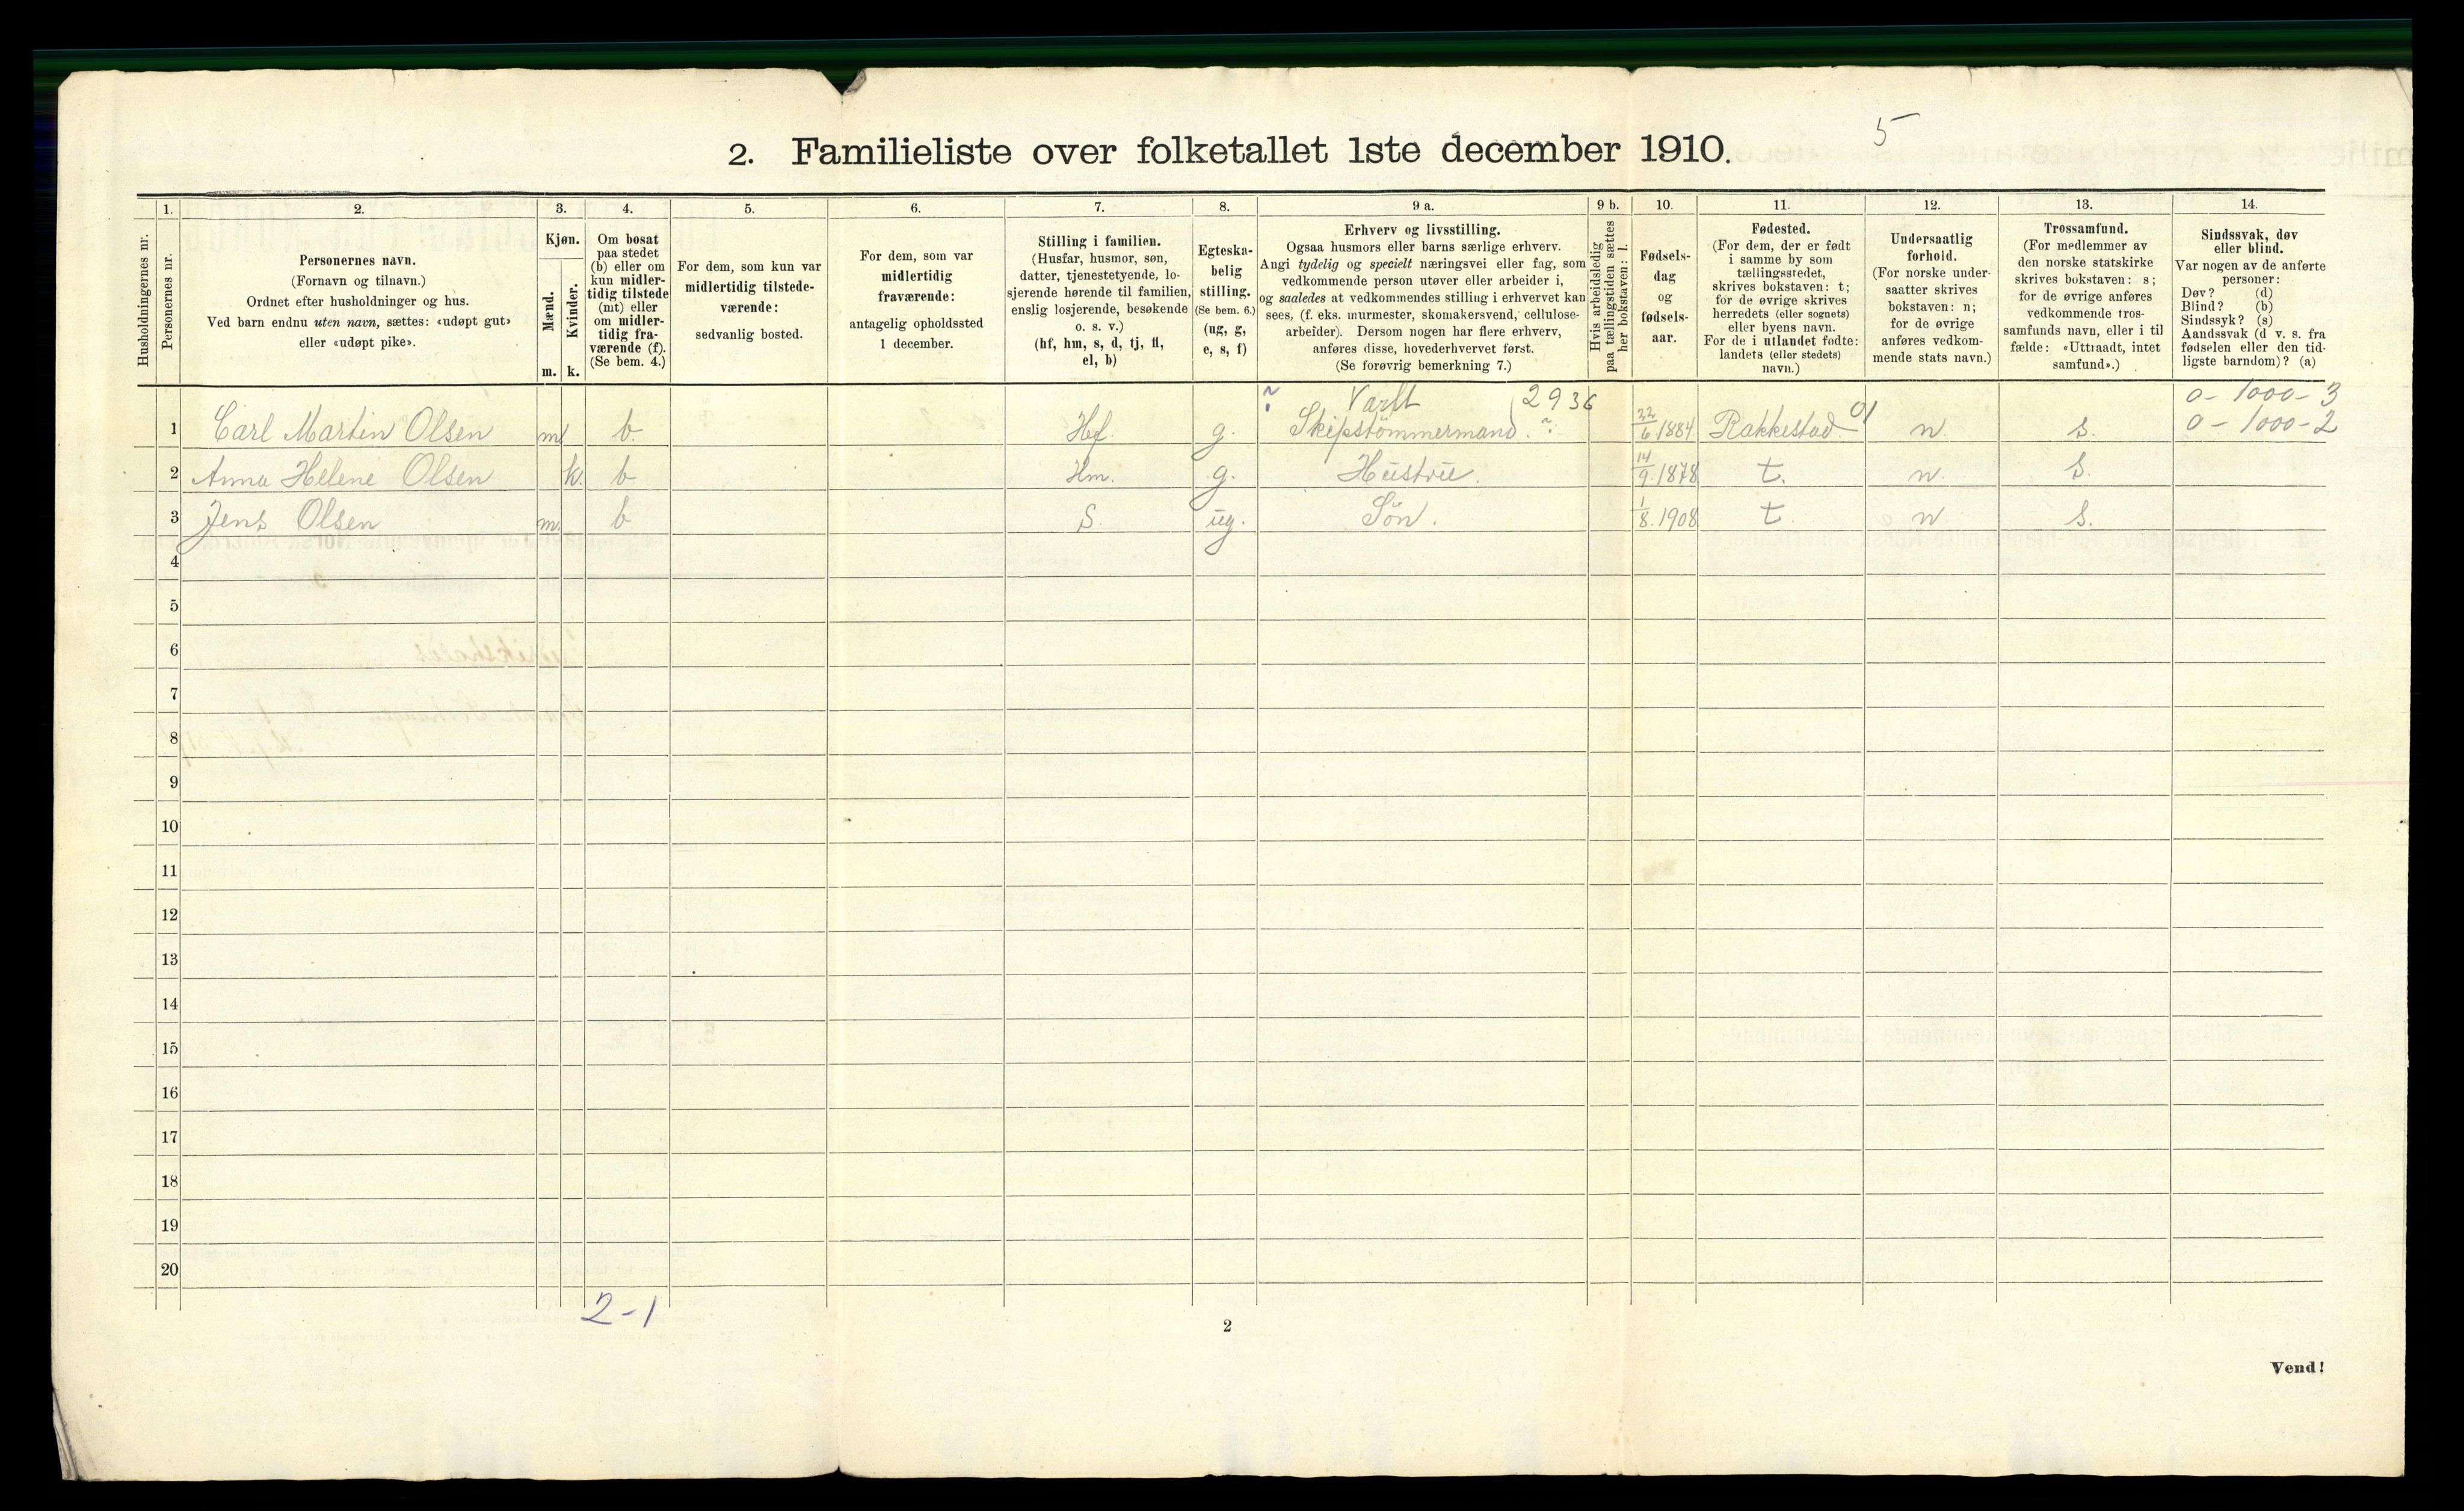 5
2. Familieliste over folketallet 1ste december 1910.
Husholdningernes nr.
1.
Personernes nr.
2.
Personernes navn.
(Fornavn og tilnavn.)
Ordnet efter husholdninger og hus.
Ved barn endnu uten navn, sættes: «udøpt gut»
eller «udøpt pike».
3.
Kjøn.
Mænd.
Kvinder.
m. k.
4.
Om bosat
paa stedet
(b) eller om
kun midler-
tidig tilstede
(mt) eller
om midler-
tidig fra-
værende (f).
(Se bem. 4.)
5.
For dem, som kun var
midlertidig tilstede-
værende:
sedvanlig bosted.
6.
For dem, som var
midlertidig
fraværende:
antagelig opholdssted
1 december.
7.
Stilling i familien.
(Husfar, husmor, søn,
datter, tjenestetyende, lo-
sjerende hørende til familien,
enslig losjerende, besøkende
o. s. v.)
(hf, hm, s, d, tj, fl,
el, b)
8.
Egteska-
belig
stilling.
(Se bem. 6.)
(ug, g,
e, s, f)
9 a.
Erhverv og livsstilling.
Ogsaa husmors eller barns særlige erhverv.
Angi tydelig og specielt næringsvei eller fag, som
vedkommende person utøver eller arbeider i,
og saaledes at vedkommendes stilling i erhvervet kan
sees, (f. eks. murmester, skomakersvend, cellulose-
arbeider). Dersom nogen har flere erhverv,
anføres disse, hovederhvervet først.
(Se forøvrig bemerkning 7.)
9 b.
Hvis arbeidsledig
paa tællingstiden sættes
her bokstaven: l.
10.
Fødsels-
dag
og
fødsels-
aar.
11.
Fødested.
(For dem, der er født
i samme by som
tællingsstedet,
skrives bokstaven: t;
for de øvrige skrives
herredets (eller sognets)
eller byens navn.
For de i utlandet fødte:
landets (eller stedets)
navn.)
12.
Undersaatlig
forhold.
(For norske under-
saatter skrives
bokstaven: n;
for de øvrige
anføres vedkom-
mende stats navn.)
13.
Trossamfund.
(For medlemmer av
den norske statskirke
skrives bokstaven: s;
for de øvrige anføres
vedkommende tros-
samfunds navn, eller i til
fælde: «Uttraadt, intet
samfund».)
14.
Sindssvak, døv
eller blind.
Var nogen av de anførte
personer:
Døv? (d)
Blind? (b)
Sindssyk? (s)
Aandssvak (d v. s. fra
fødselen eller den tid-
ligste barndom)? (a)
2936 0-1000-3
1 Carl Martin Olsen m b. Hf. g. Skipstömmermand. 22/6 1884 Rakkestad. 01 n. s. 0-1000-2
2 Anna Helene Olsen k. b Hm. g. Hustru. 14/9 1878 t. n. s.
3 Jens Olsen m. b S. ug. Sön. 1/8 1908 t. n s.
4
5
6
7
8
9
10
11
12
13
14
15
16
17
18
19
20
2-1
2
Vend!